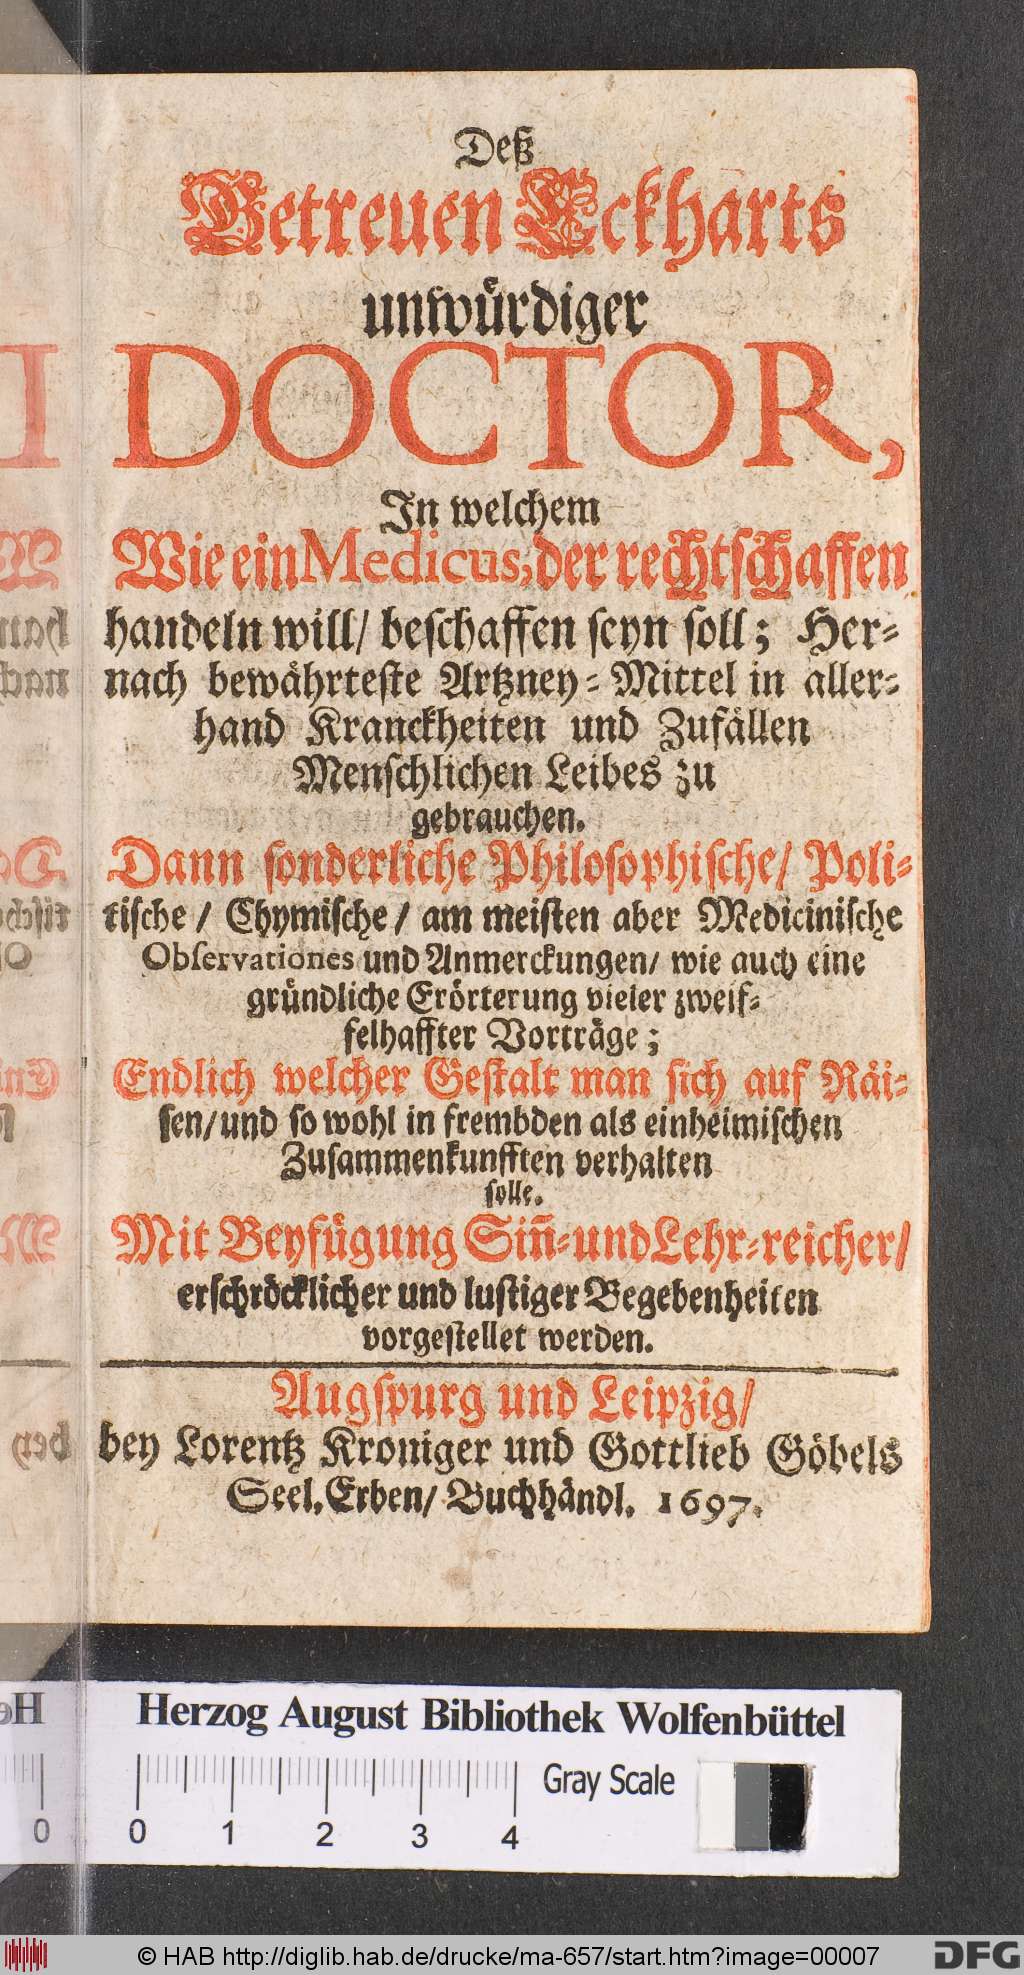 Deß
Getreuen Eckharts
unwürdiger
DOCTOR,
In welchem
Wie ein Medicus, der rechtschaffen
handeln will/ beschaffen seyn soll; Her-
nach bewährteste Artzney-Mittel in aller-
hand Kranckheiten und Zufällen
Menschlichen Leibes zu
gebrauchen.
Dann sonderliche Philosophische/ Poli-
tische/ Chymische/ am meisten aber Medicinische
Observationes und Anmerckungen/ wie auch eine
gründliche Erörterung vieler zweif-
felhaffter Vorträge;
Endlich welcher Gestalt man sich auf Räi-
sen/ und so wohl in frembden als einheimischen
Zusammenkunfften verhalten
solle.
Mit Beyfügung Siñ- und Lehr-reicher/
erschröcklicher und lustiger Begebenheiten
vorgestellet werden.
Augspurg und Leipzig/
bey Lorentz Kroniger und Gottlieb Göbels
Seel. Erben/ Buchhändl. 1697.
Herzog August Bibliothek Wolfenbüttel
Gray Scale
0 1 2 3 4
© HAB http://diglib.hab.de/drucke/ma-657/start.htm?image=00007
DFG